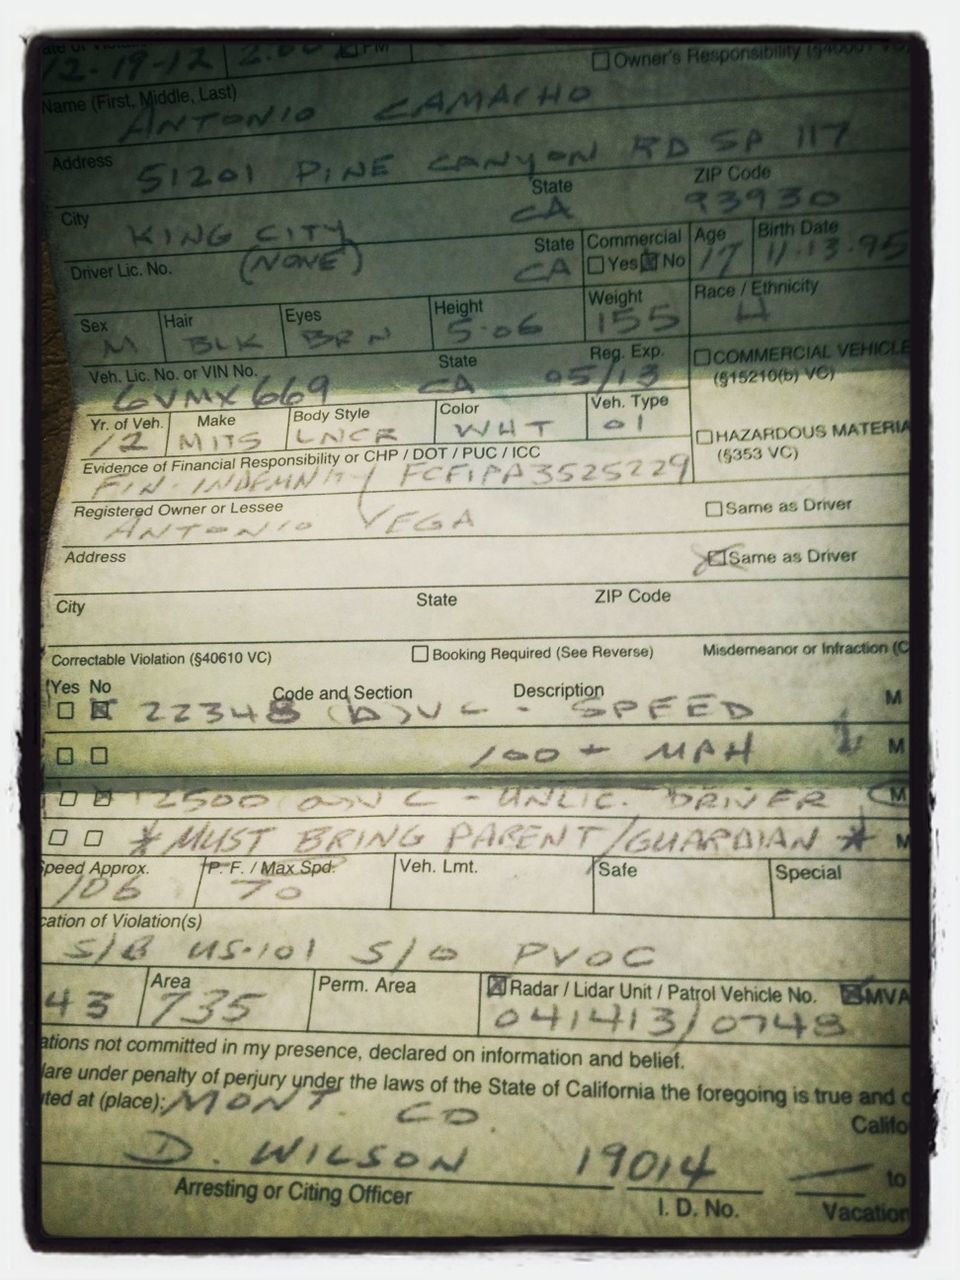 ate of Violation
12-19-12 2:00 PM
Owner's Responsibility (§40001 VC)
Name (First, Middle, Last)
ANTONIO CAMACHO
Address
51201 PINE CANYON RD SP 117
City State ZIP Code
KING CITY CA 93930
Driver Lic. No. State Commercial Age Birth Date
(NONE) CA Yes No 17 11-13-95
Sex Hair Eyes Height Weight Race / Ethnicity
M BLK BRN 5-06 155 H
Veh. Lic. No. or VIN No. State Reg. Exp. COMMERCIAL VEHICLE
6VMX669 CA 05/13 (§15210(b) VC)
Yr. of Veh. Make Body Style Color Veh. Type
12 MITS LNCR WHT 01 HAZARDOUS MATERIA
Evidence of Financial Responsibility or CHP / DOT / PUC / ICC (§353 VC)
FIN. INDEMNITY FCFIPA3525229
Registered Owner or Lessee Same as Driver
ANTONIO VEGA
Address Same as Driver
City State ZIP Code
Correctable Violation (§40610 VC) Booking Required (See Reverse) Misdemeanor or Infraction (C
Yes No Code and Section Description
22348 (b) VC - SPEED M
100 + MPH M
12500 (a) VC - UNLIC. DRIVER M
*MUST BRING PARENT/GUARDIAN * M
Speed Approx. P. F. / Max Spd. Veh. Lmt. Safe Special
106 70
cation of Violation(s)
S/B US-101 S/O PVOC
Area Perm. Area Radar / Lidar Unit / Patrol Vehicle No. MVA
43 735 041413/0748
ations not committed in my presence, declared on information and belief.
lare under penalty of perjury under the laws of the State of California the foregoing is true and c
uted at (place): MONT CO. Califo
D. WILSON 19014 to
Arresting or Citing Officer I. D. No. Vacation